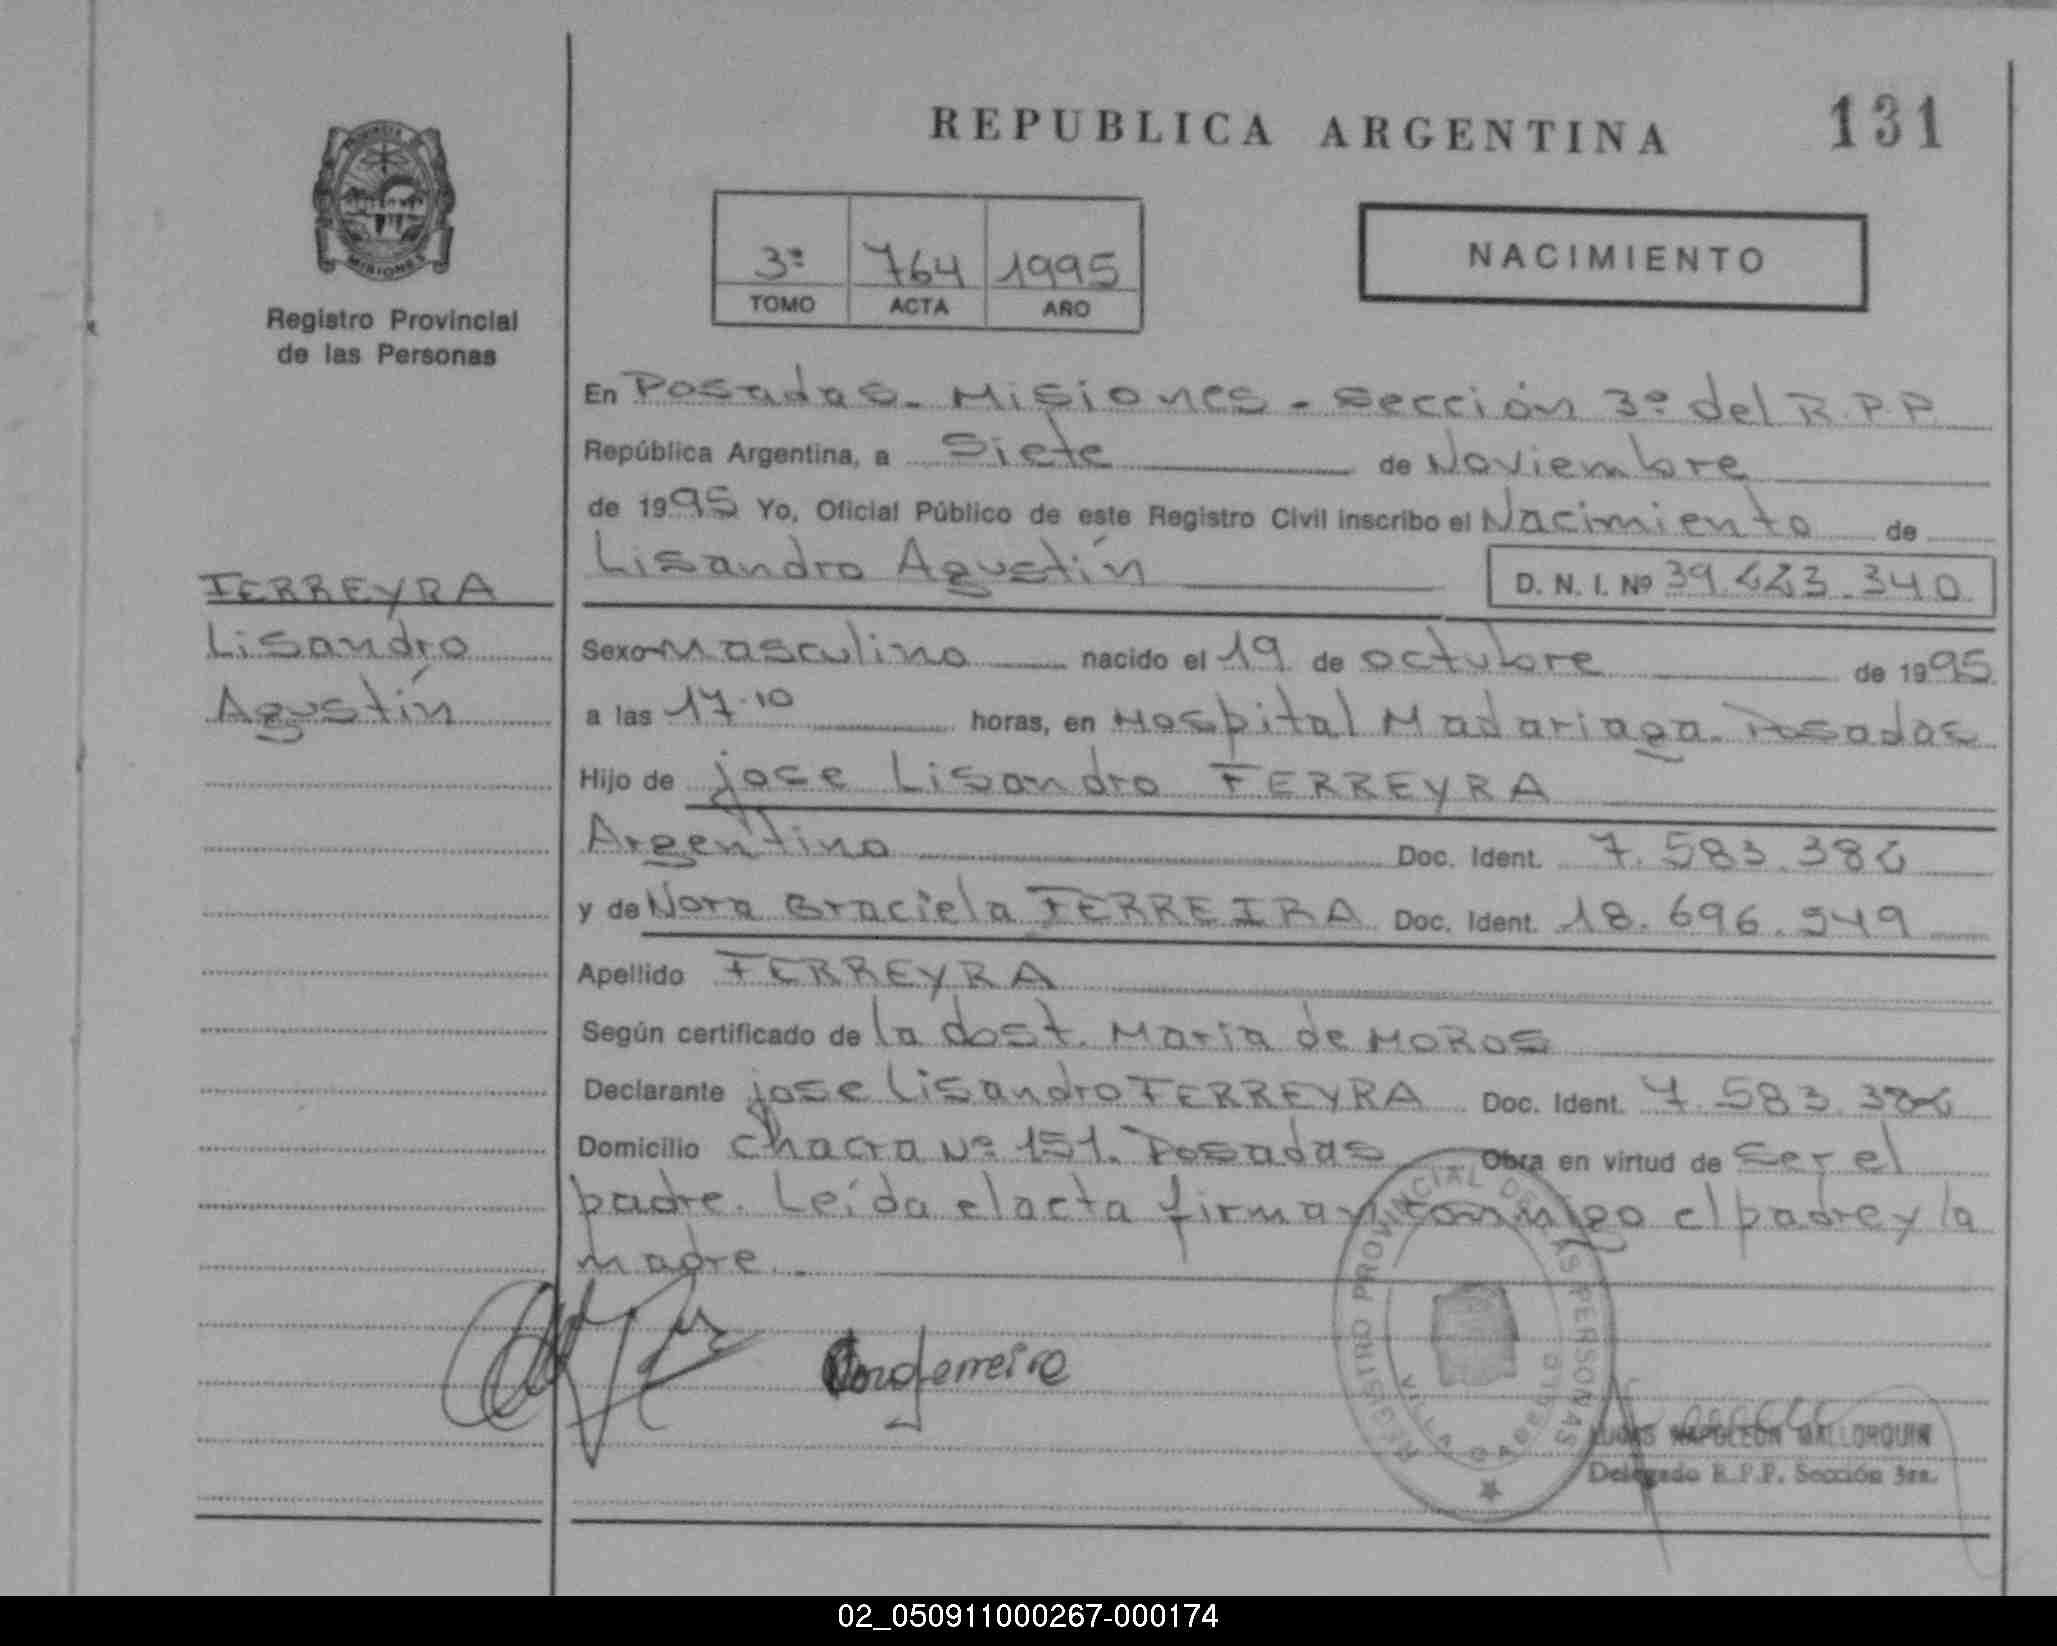 REPUBLICA ARGENTINA
131
PROVINCIA
MISIONES
Registro Provincial
de las Personas
3ª 764 1995
TOMO ACTA AÑO
NACIMIENTO
En Posadas - Misiones - Sección 3ª del R.P.P.
República Argentina, a Siete de Noviembre
de 1995 Yo, Oficial Público de este Registro Civil inscribo el Nacimiento de
Lisandro Agustín
D. N. I. Nº 39.223.340
FERREYRA
Lisandro
Agustín
Sexo Masculino nacido el 19 de octubre de 1995
a las 17.10 horas, en Hospital Madariaga - Posadas
Hijo de jose Lisandro FERREYRA
Argentino Doc. Ident. 7.583.386
y de Nora Graciela FERREIRA Doc. Ident. 18.696.949
Apellido FERREYRA
Según certificado de la dost. Maria de MOROS
Declarante jose Lisandro FERREYRA Doc. Ident. 7.583.386
Domicilio Chacra Nº 151. Posadas Obra en virtud de Ser el
padre. Leída el acta firman conmigo el padre y la
madre.
REGISTRO PROVINCIAL DE LAS PERSONAS
VILLA CABELLO
LUCAS NAPOLEON MALLORQUIN
Delegado R.P.P. Sección 3ra.
02_050911000267-000174